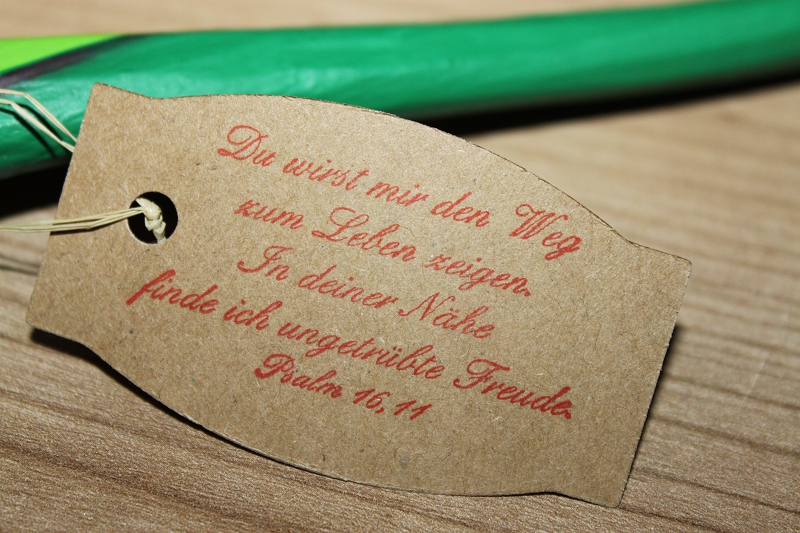 Du wirst mir den Weg
zum Leben zeigen.
In deiner Nähe
finde ich ungetrübte Freude.
Psalm 16,11